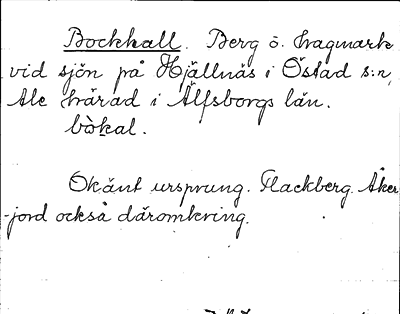 Bockhall. Berg o. hagmark
vid sjön på Hjällnäs i Östad s:n,
Ale härad i Älfsborgs län.
bòkal.
Okänt ursprung. Flackberg. Åker
-jord också däromkring.